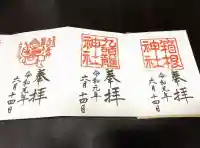 奉拝
箱根神社
令和元年
六月十四日
奉拝
九頭龍神社
令和元年
六月十四日
奉拝
令和元年
六月十四日